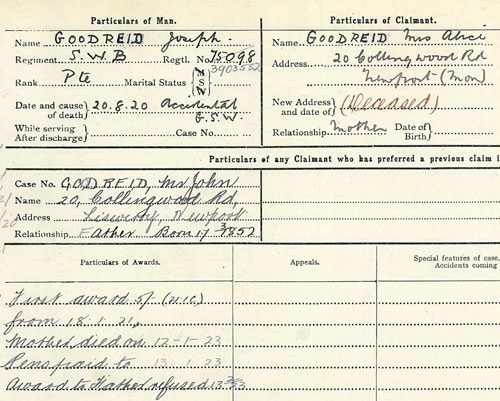 Particulars of Man.
Name GOODREID Joseph.
Regiment S.W.B Regtl. No. 75098
3903582
Rank Pte Marital Status M S W
Date and cause of death 20.8.20 Accidental
G.S.W
While serving
After discharge Case No.
Particulars of Claimant.
Name GOODREID Mrs Alice
Address 20 Collingwood Rd
Newport (Mon)
New Address and date of (Deceased)
Relationship Mother Date of Birth
Particulars of any Claimant who has preferred a previous claim i
Case No. GOODREID, Mr John
Name 20, Collingwood Rd,
Address Liswerry, Newport
Relationship Father Born 17 1852
Particulars of Awards.
Appeals.
Special features of case,
Accidents coming
First award 5/- (21.1C)
from 18.1.21,
Mother died on 12-1-23
Pens paid to 13 1 23
Award to Father refused 13